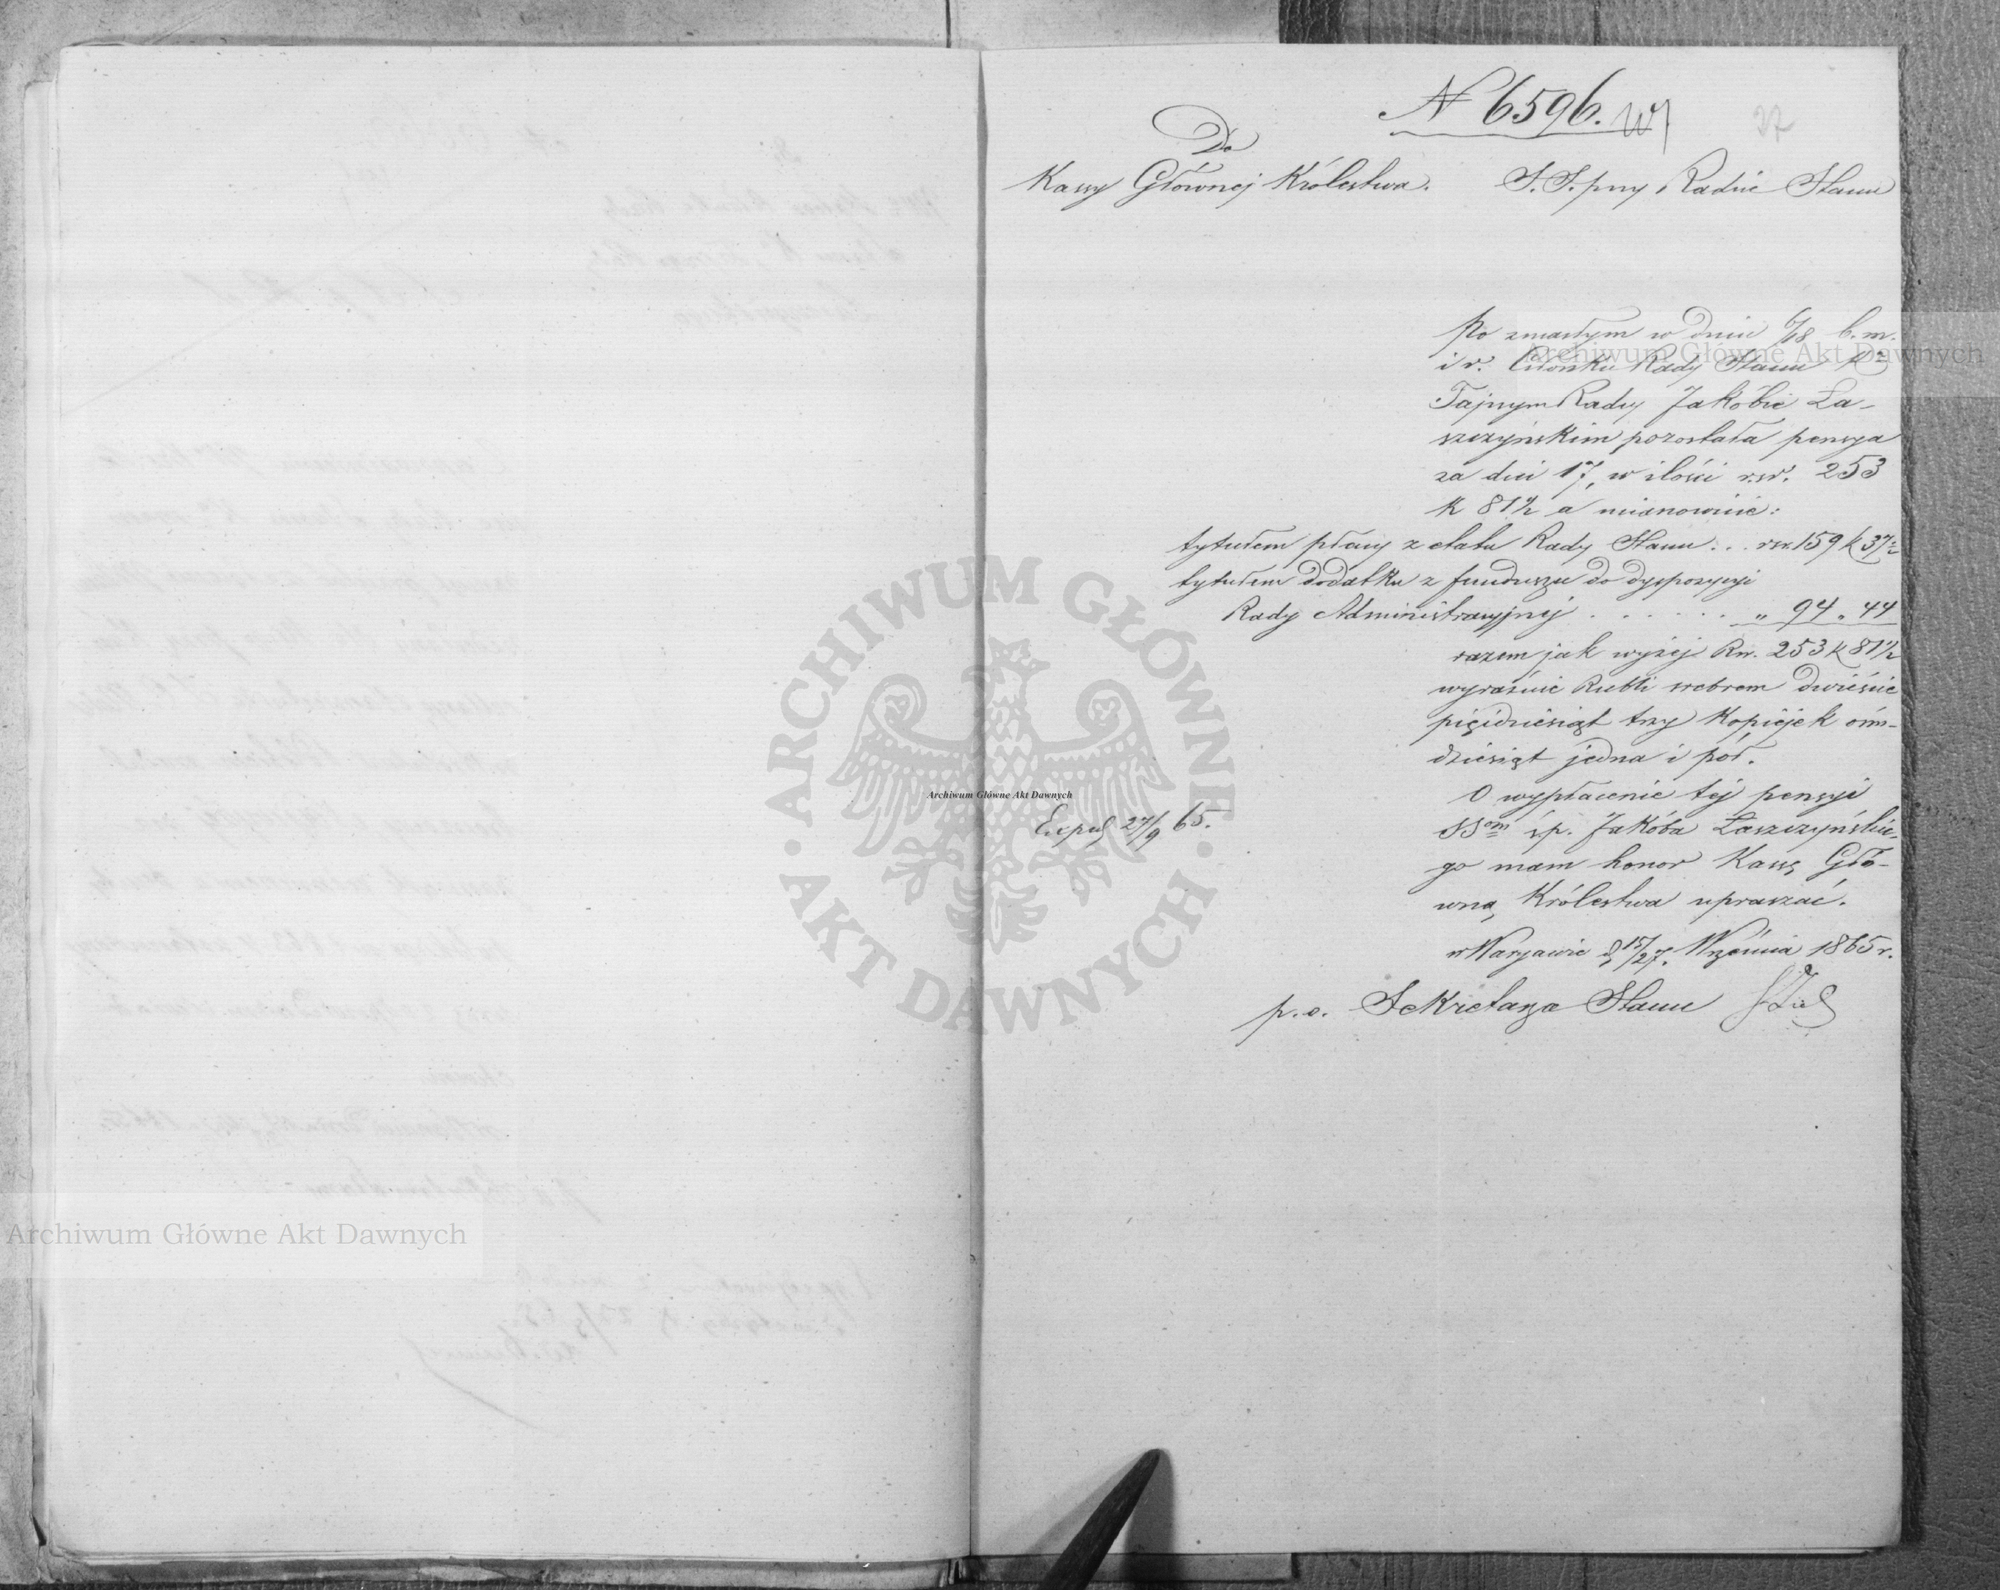 N 6596.
27
Do
Kassy Głównej Królestwa.
S. S. przy Radzie Stanu
Po zmarłym w dniu 6/18 b. m.
i r. Członku Rady Stanu
Tajnym Radcy Jakóbie Ła-
szczyńskim pozostała pensya
za dni 17, w ilości rsr. 253
k 81½ a mianowicie:
tytułem płacy z etatu Rady Stanu . . . rsr. 159 k 37½
tytułem dodatku z funduszu do dyspozycyi
Rady Administracyjnej . . . . . . „ 94 „ 44
razem jak wyżej Rsr. 253 k 81½
wyraźnie Rubli srebrem dwieście
pięćdziesiąt trzy Kopiejek ośm-
dziesiąt jedna i pół.
O wypłacenie tej pensyi
SSom ś. p. Jakóba Łaszczyńskie-
go mam honor Kassę Głó-
wną Królestwa upraszać.
w Warszawie d. 15/27. Września 1865 r.
p. o. Sekretarza Stanu
Exped 27/9 65.
Archiwum Główne Akt Dawnych
Archiwum Główne Akt Dawnych
Archiwum Główne Akt Dawnych
ARCHIWUM GŁÓWNE · AKT DAWNYCH ·